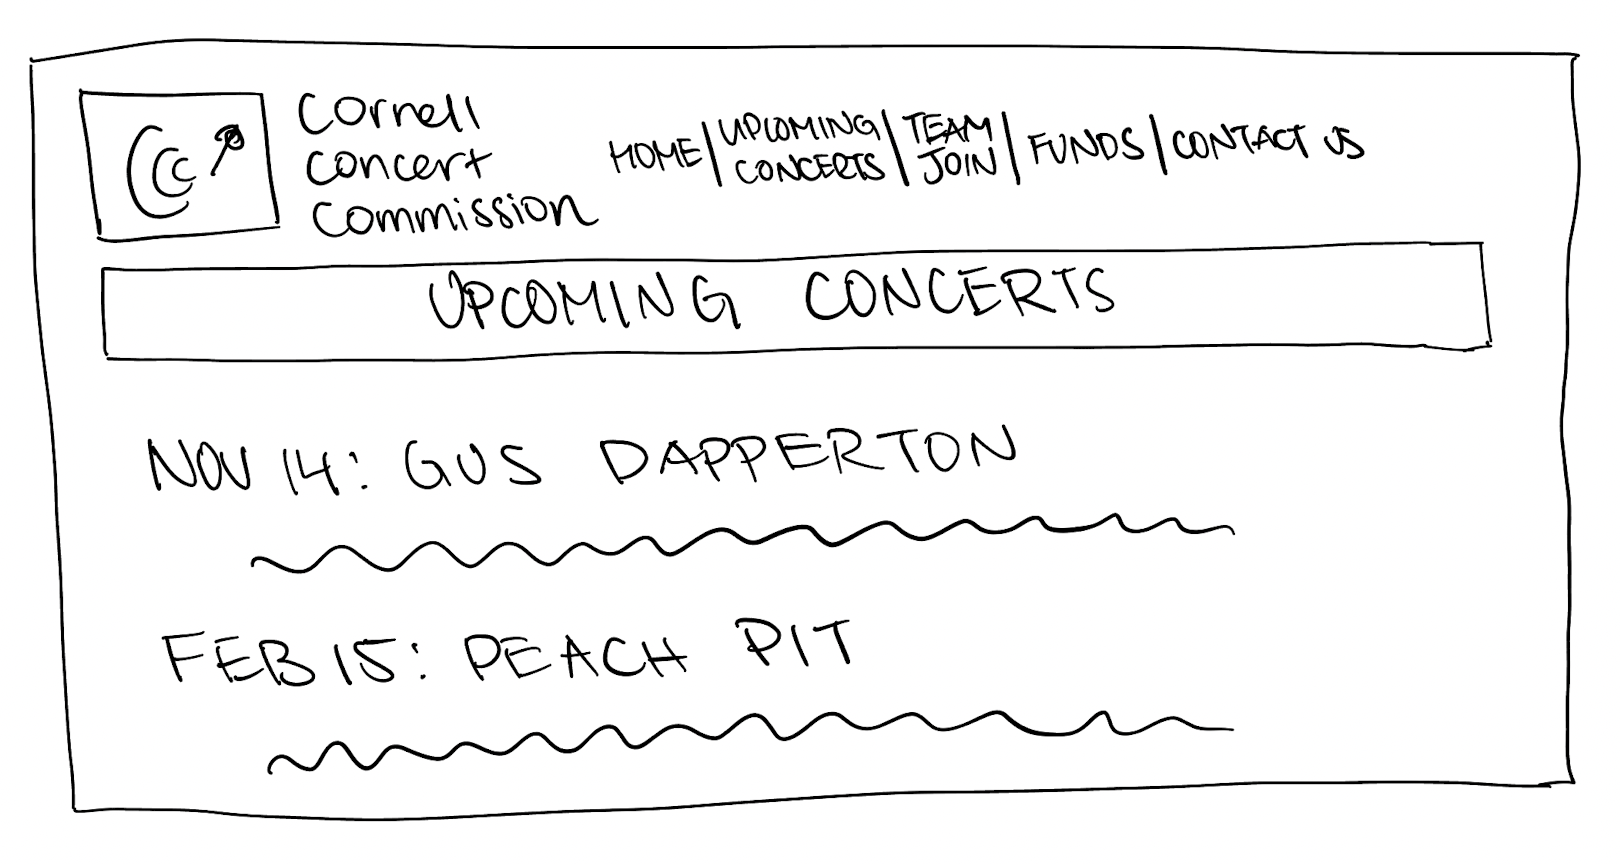 CCC
Cornell
concert
commission
HOME | UPCOMING CONCERTS | TEAM JOIN | FUNDS | CONTACT US
UPCOMING CONCERTS
NOV 14: GUS DAPPERTON
FEB 15: PEACH PIT